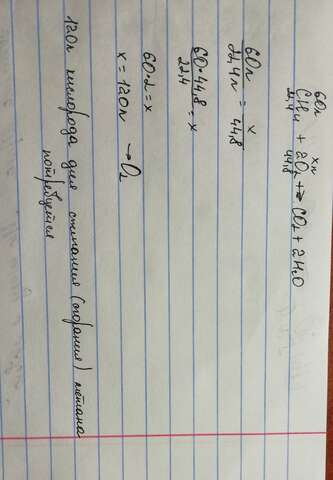 60л xл
CH₄ + 2O₂ → CO₂ + 2H₂O
22,4 44,8
60л/22,4л = x/44,8
60·44,8/22,4 = x
60·2 = x
x = 120л → O₂
120л кислорода для сжигания (сгорания) метана
потребуется